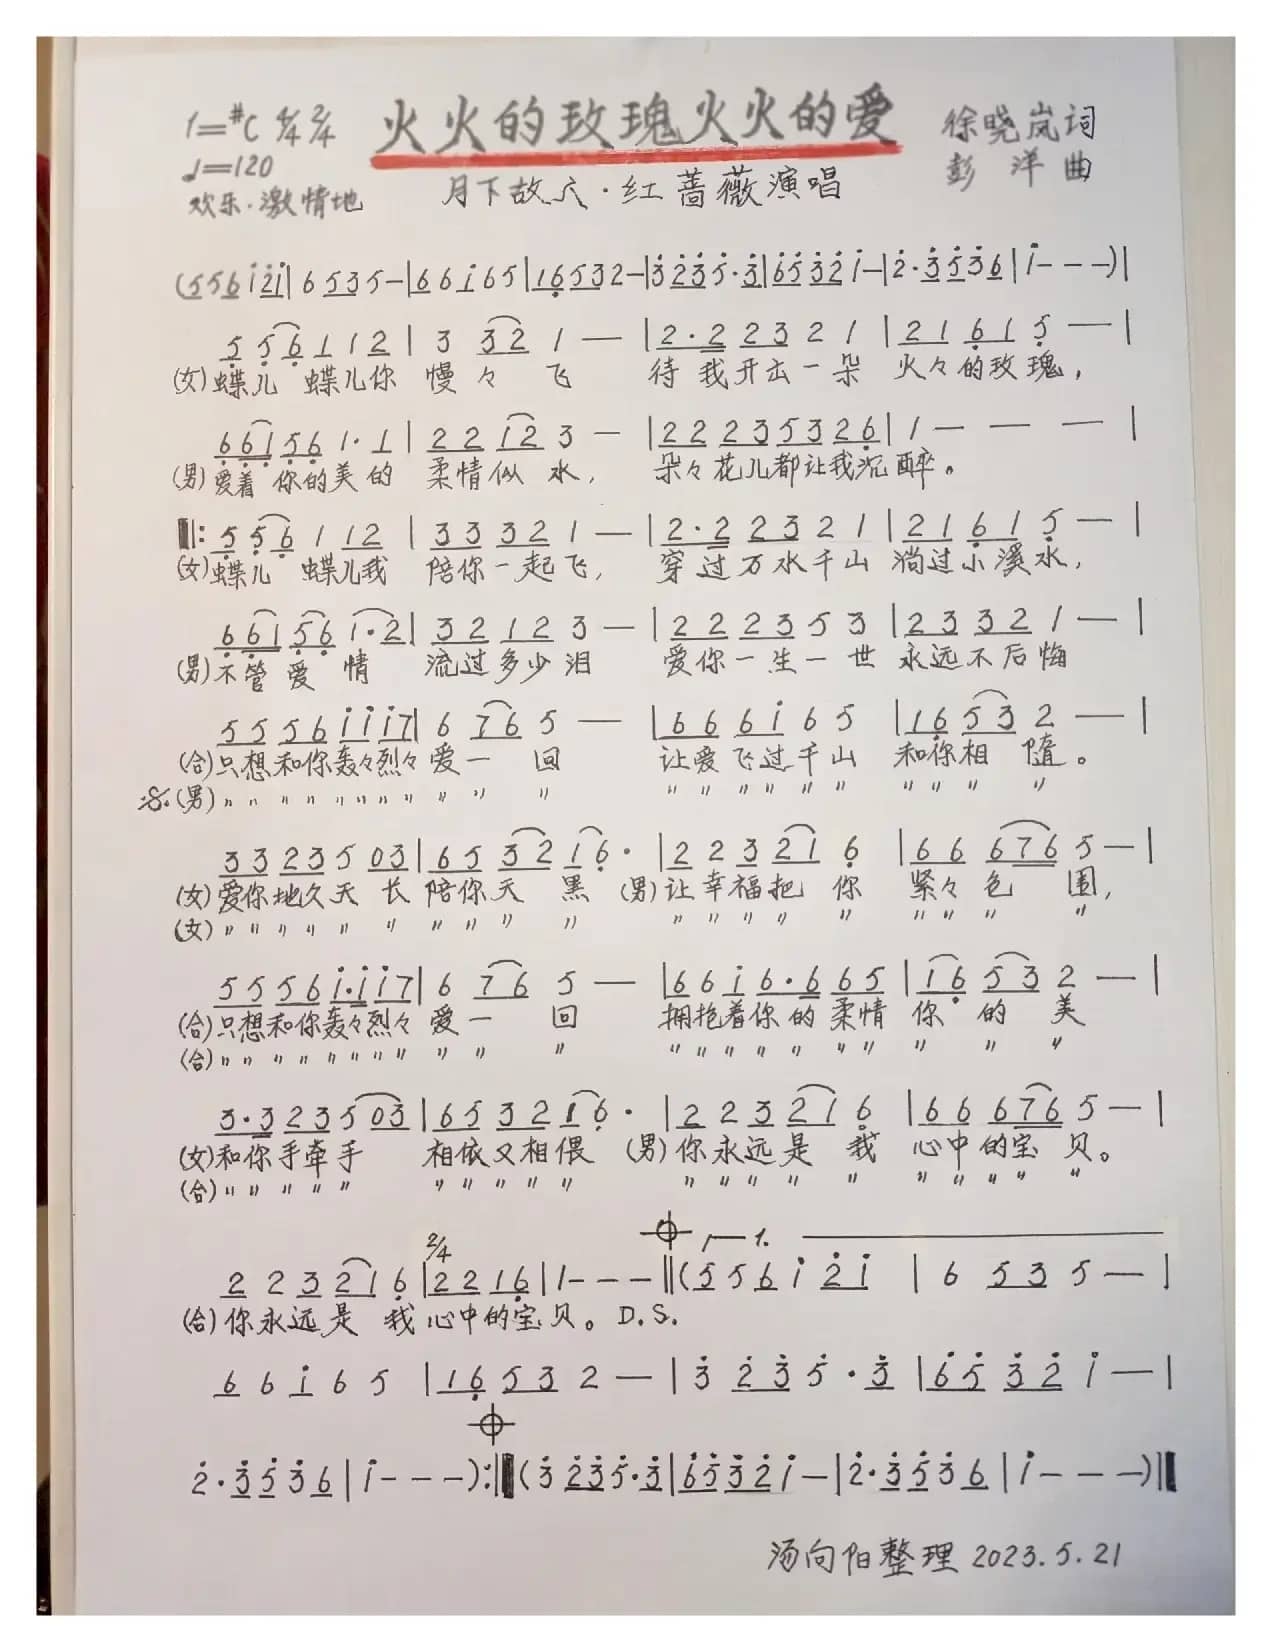 1=#C 4/4 2/4 火火的玫瑰火火的爱 徐晓岚词
♩=120 彭洋曲
欢乐·激情地 月下故人·红蔷薇演唱
(5 5 6 i 2̇ i | 6 5 3 5 — | 6 6 i 6 5 | 1 6̣ 5 3 2 — | 3̇ 2̇ 3̇ 5̇ · 3̇ | 6̇ 5̇ 3̇ 2̇ i — | 2̇ · 3̇ 5̇ 3̇ 6 | i - - - ) |
5̣ 5̣ 6̣ 1 1 2 | 3 3 2 1 — | 2 · 2 2 3 2 1 | 2 1 6̣ 1 5̣ — |
(女) 蝶儿 蝶儿你 慢々 飞 待我开出一朵 火々的玫瑰,
6̣ 6̣ 1 5̣ 6̣ 1 · 1 | 2 2 1 2 3 — | 2 2 2 3 5 3 2 6̣ | 1 — — — |
(男) 爱着 你的美的 柔情似水, 朵々花儿都让我沉醉。
‖: 5̣ 5̣ 6̣ 1 1 2 | 3 3 3 2 1 — | 2 · 2 2 3 2 1 | 2 1 6̣ 1 5̣ — |
(女) 蝶儿 蝶儿我 陪你一起飞, 穿过万水千山 淌过小溪水,
6̣ 6̣ 1 5̣ 6̣ 1 · 2 | 3 2 1 2 3 — | 2 2 2 3 5 3 | 2 3 3 2 1 — |
(男) 不管爱情 流过多少泪 爱你一生一世 永远不后悔
5 5 5 6 i i i 7 | 6 7 6 5 — | 6 6 6 i 6 5 | 1 6̣ 5 3 2 — |
(合) 只想和你轰々烈々 爱一回 让爱飞过千山 和你相随。
𝄋 (男) 〃 〃 〃 〃 〃 〃 〃 〃 〃 〃 〃 〃 〃 〃 〃 〃 〃 〃 〃 〃 〃
3 3 2 3 5 0 3 | 6 5 3 2 1 6̣ · | 2 2 3 2 1 6̣ | 6 6 6 7 6 5 — |
(女) 爱你地久天 长 陪你天黑 (男) 让幸福把你 紧々包围,
(女) 〃 〃 〃 〃 〃 〃 〃 〃 〃 〃 〃 〃 〃 〃 〃 〃 〃 〃 〃
5 5 5 6 i · i i 7 | 6 7 6 5 — | 6 6 i 6 · 6 6 5 | 1 6̣ 5 3 2 — |
(合) 只想和你轰々烈々 爱一回 拥抱着你的柔情 你的美
(合) 〃 〃 〃 〃 〃 〃 〃 〃 〃 〃 〃 〃 〃 〃 〃 〃 〃 〃 〃 〃 〃
3 · 3 2 3 5 0 3 | 6 5 3 2 1 6̣ · | 2 2 3 2 1 6̣ | 6 6 6 7 6 5 — |
(女) 和你手牵手 相依又相偎 (男) 你永远是我 心中的宝贝。
(合) 〃 〃 〃 〃 〃 〃 〃 〃 〃 〃 〃 〃 〃 〃 〃 〃 〃 〃 〃 〃
2/4 𝄌 1.
2 2 3 2 1 6̣ | 2 2 1 6̣ | 1 - - - ‖ (5 5 6 i 2̇ i | 6 5 3 5 — |
(合) 你永远是 我心中的宝贝。D.S.
6 6 i 6 5 | 1 6̣ 5 3 2 — | 3̇ 2̇ 3̇ 5̇ · 3̇ | 6̇ 5̇ 3̇ 2̇ i — |
𝄌
2̇ · 3̇ 5̇ 3̇ 6 | i - - - ) :‖ (3̇ 2̇ 3̇ 5̇ · 3̇ | 6̇ 5̇ 3̇ 2̇ i — | 2̇ · 3̇ 5̇ 3̇ 6 | i - - - ) ‖
汤向阳整理 2023.5.21